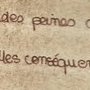 des peines
lles conséquen